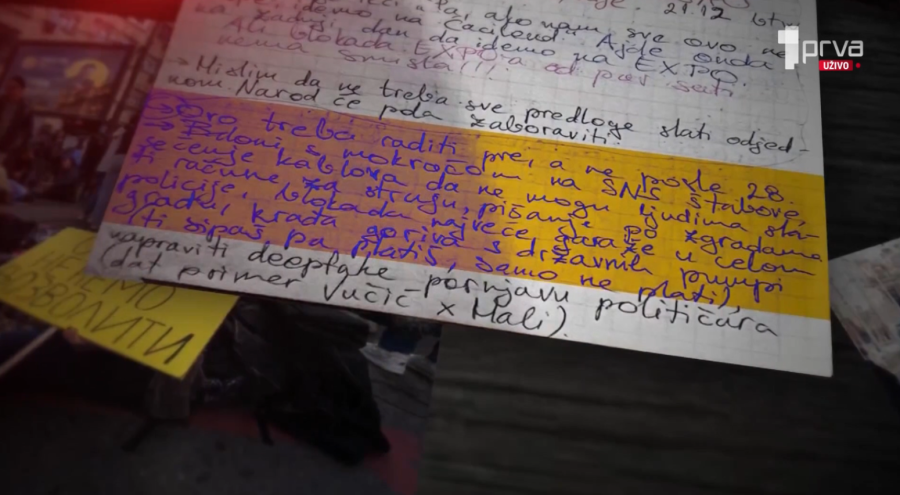 21.12
idemo na Ćacilend. Ajde onda
zadnji dan da idemo na EXPO.
Ali blokada EXPO-a od par sati
nema smisla!!!
→ Mislim da ne treba sve predloge slati odjed-
nom. Narod će pola zaboraviti.
→ Ovo treba raditi pre, a ne posle 28.
→ Baloni s mokraćom na SNS štabove,
sečenje kablova da ne mogu ljudima
ti račune za struju, pisanje po zgradama
policije, blokada najveće garaže u celom
gradu, krađa goriva s državnih pumpi
(ti sipaš pa platiš, samo ne plati),
napraviti deepfake pornjavu političara
(dat primer Vučić x Mali).
prva
UŽIVO